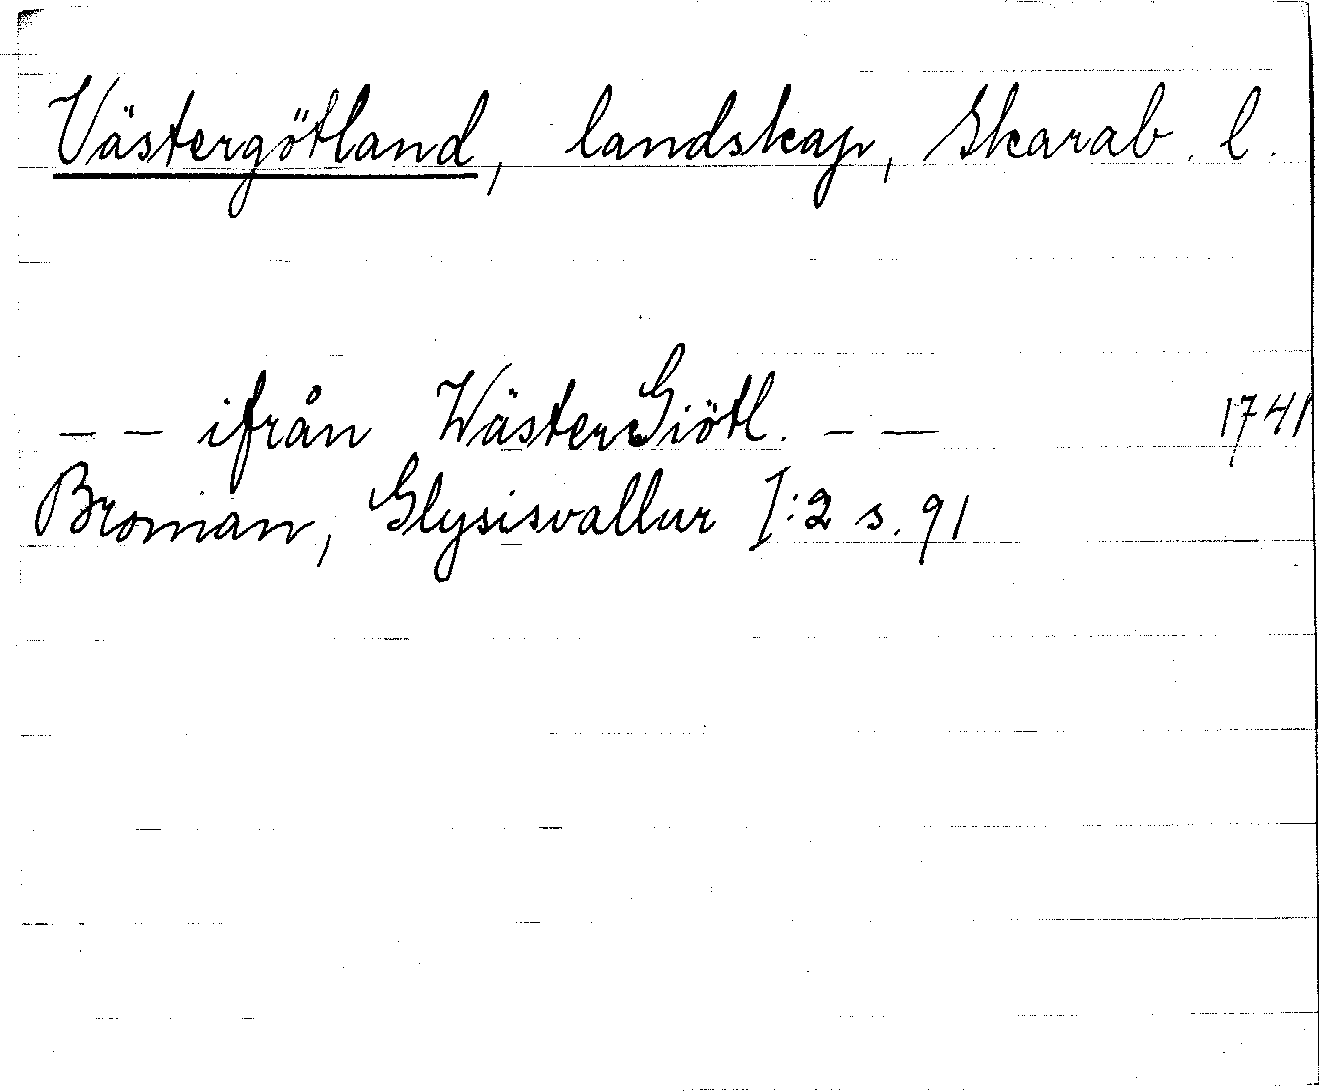 Västergötland, landskap, Skarab. l.
– – ifrån WästerGiötl. – – 1741
Broman, Glysisvallur I:2 s. 91